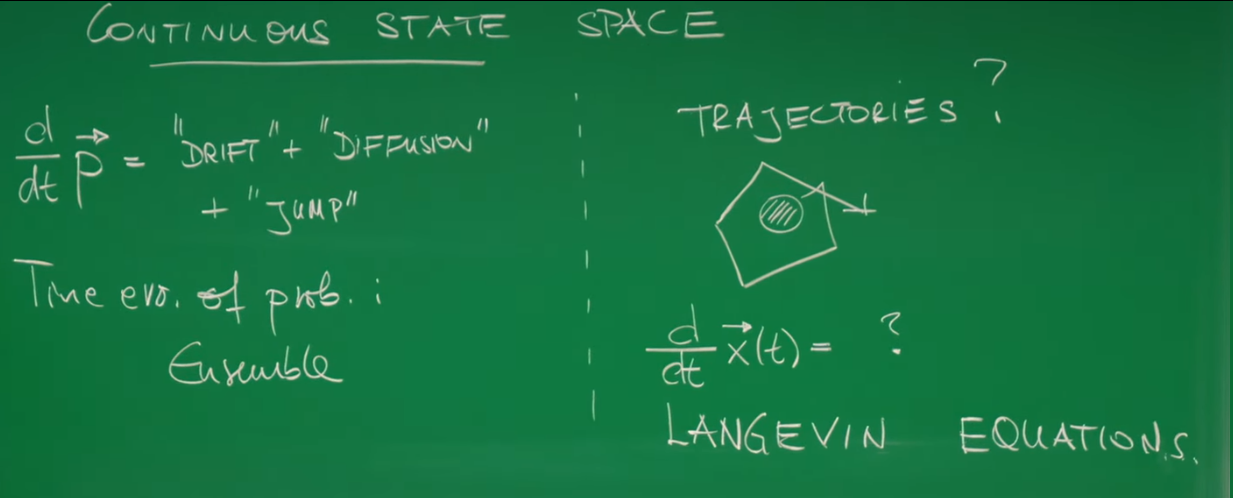 CONTINUOUS STATE SPACE
d/dt p⃗ = "DRIFT" + "DIFFUSION"
+ "JUMP"
Time evo. of prob. :
Ensemble
TRAJECTORIES ?
d/dt x⃗(t) = ?
LANGEVIN EQUATIONS.